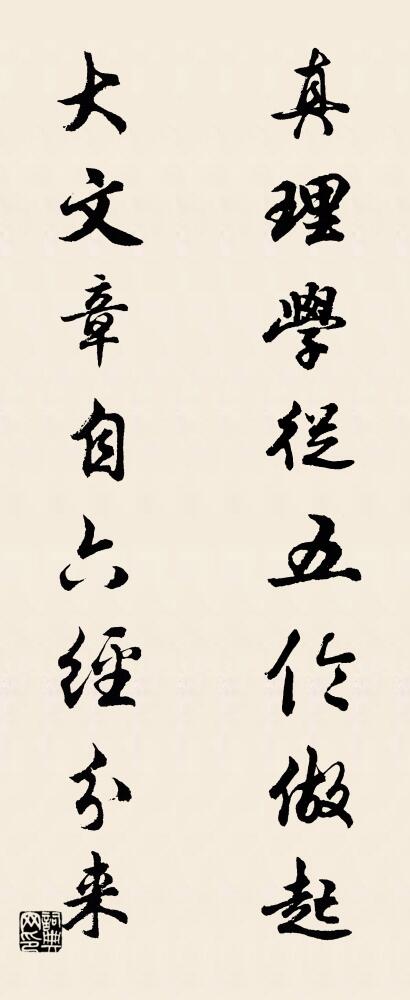 真理學從五伦做起
大文章自六經分来
詞典
网印